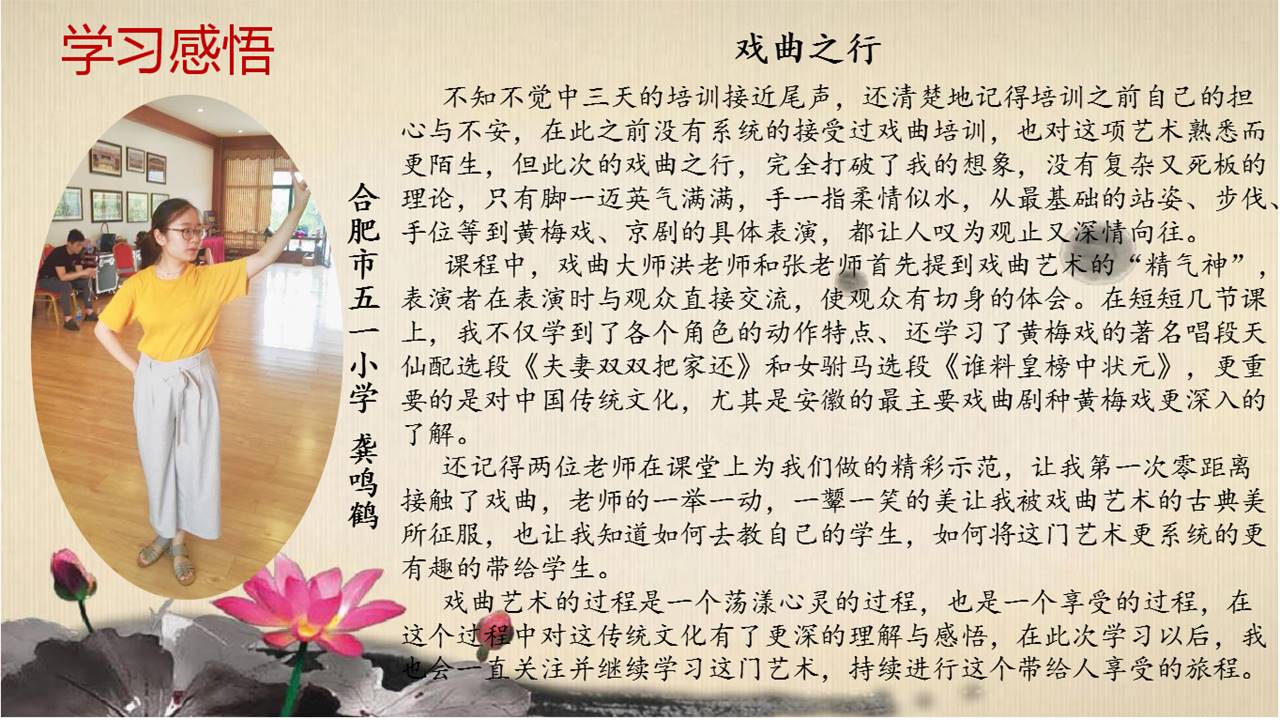 学习感悟
戏曲之行
合肥市五一小学 龚鸣鹤
不知不觉中三天的培训接近尾声，还清楚地记得培训之前自己的担
心与不安，在此之前没有系统的接受过戏曲培训，也对这项艺术熟悉而
更陌生，但此次的戏曲之行，完全打破了我的想象，没有复杂又死板的
理论，只有脚一迈英气满满，手一指柔情似水，从最基础的站姿、步伐、
手位等到黄梅戏、京剧的具体表演，都让人叹为观止又深情向往。
课程中，戏曲大师洪老师和张老师首先提到戏曲艺术的“精气神”，
表演者在表演时与观众直接交流，使观众有切身的体会。在短短几节课
上，我不仅学到了各个角色的动作特点、还学习了黄梅戏的著名唱段天
仙配选段《夫妻双双把家还》和女驸马选段《谁料皇榜中状元》，更重
要的是对中国传统文化，尤其是安徽的最主要戏曲剧种黄梅戏更深入的
了解。
还记得两位老师在课堂上为我们做的精彩示范，让我第一次零距离
接触了戏曲，老师的一举一动，一颦一笑的美让我被戏曲艺术的古典美
所征服，也让我知道如何去教自己的学生，如何将这门艺术更系统的更
有趣的带给学生。
戏曲艺术的过程是一个荡漾心灵的过程，也是一个享受的过程，在
这个过程中对这传统文化有了更深的理解与感悟，在此次学习以后，我
也会一直关注并继续学习这门艺术，持续进行这个带给人享受的旅程。